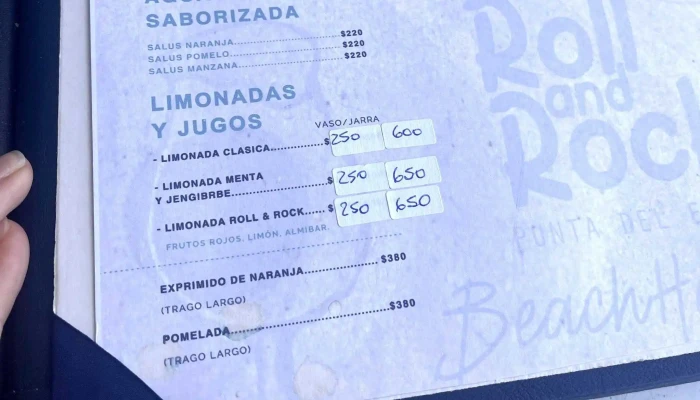 SABORIZADA
SALUS NARANJA..............................$220
SALUS POMELO..............................$220
SALUS MANZANA............................$220
LIMONADAS
Y JUGOS
VASO/JARRA
- LIMONADA CLASICA................$ 250 600
- LIMONADA MENTA
Y JENGIBRBE.........................$ 250 650
- LIMONADA ROLL & ROCK......$ 250 650
FRUTOS ROJOS, LIMÓN, ALMIBAR.
EXPRIMIDO DE NARANJA.................. $380
(TRAGO LARGO)
POMELADA........................................$380
(TRAGO LARGO)
Roll
and
Rock
PUNTA DEL
Beach